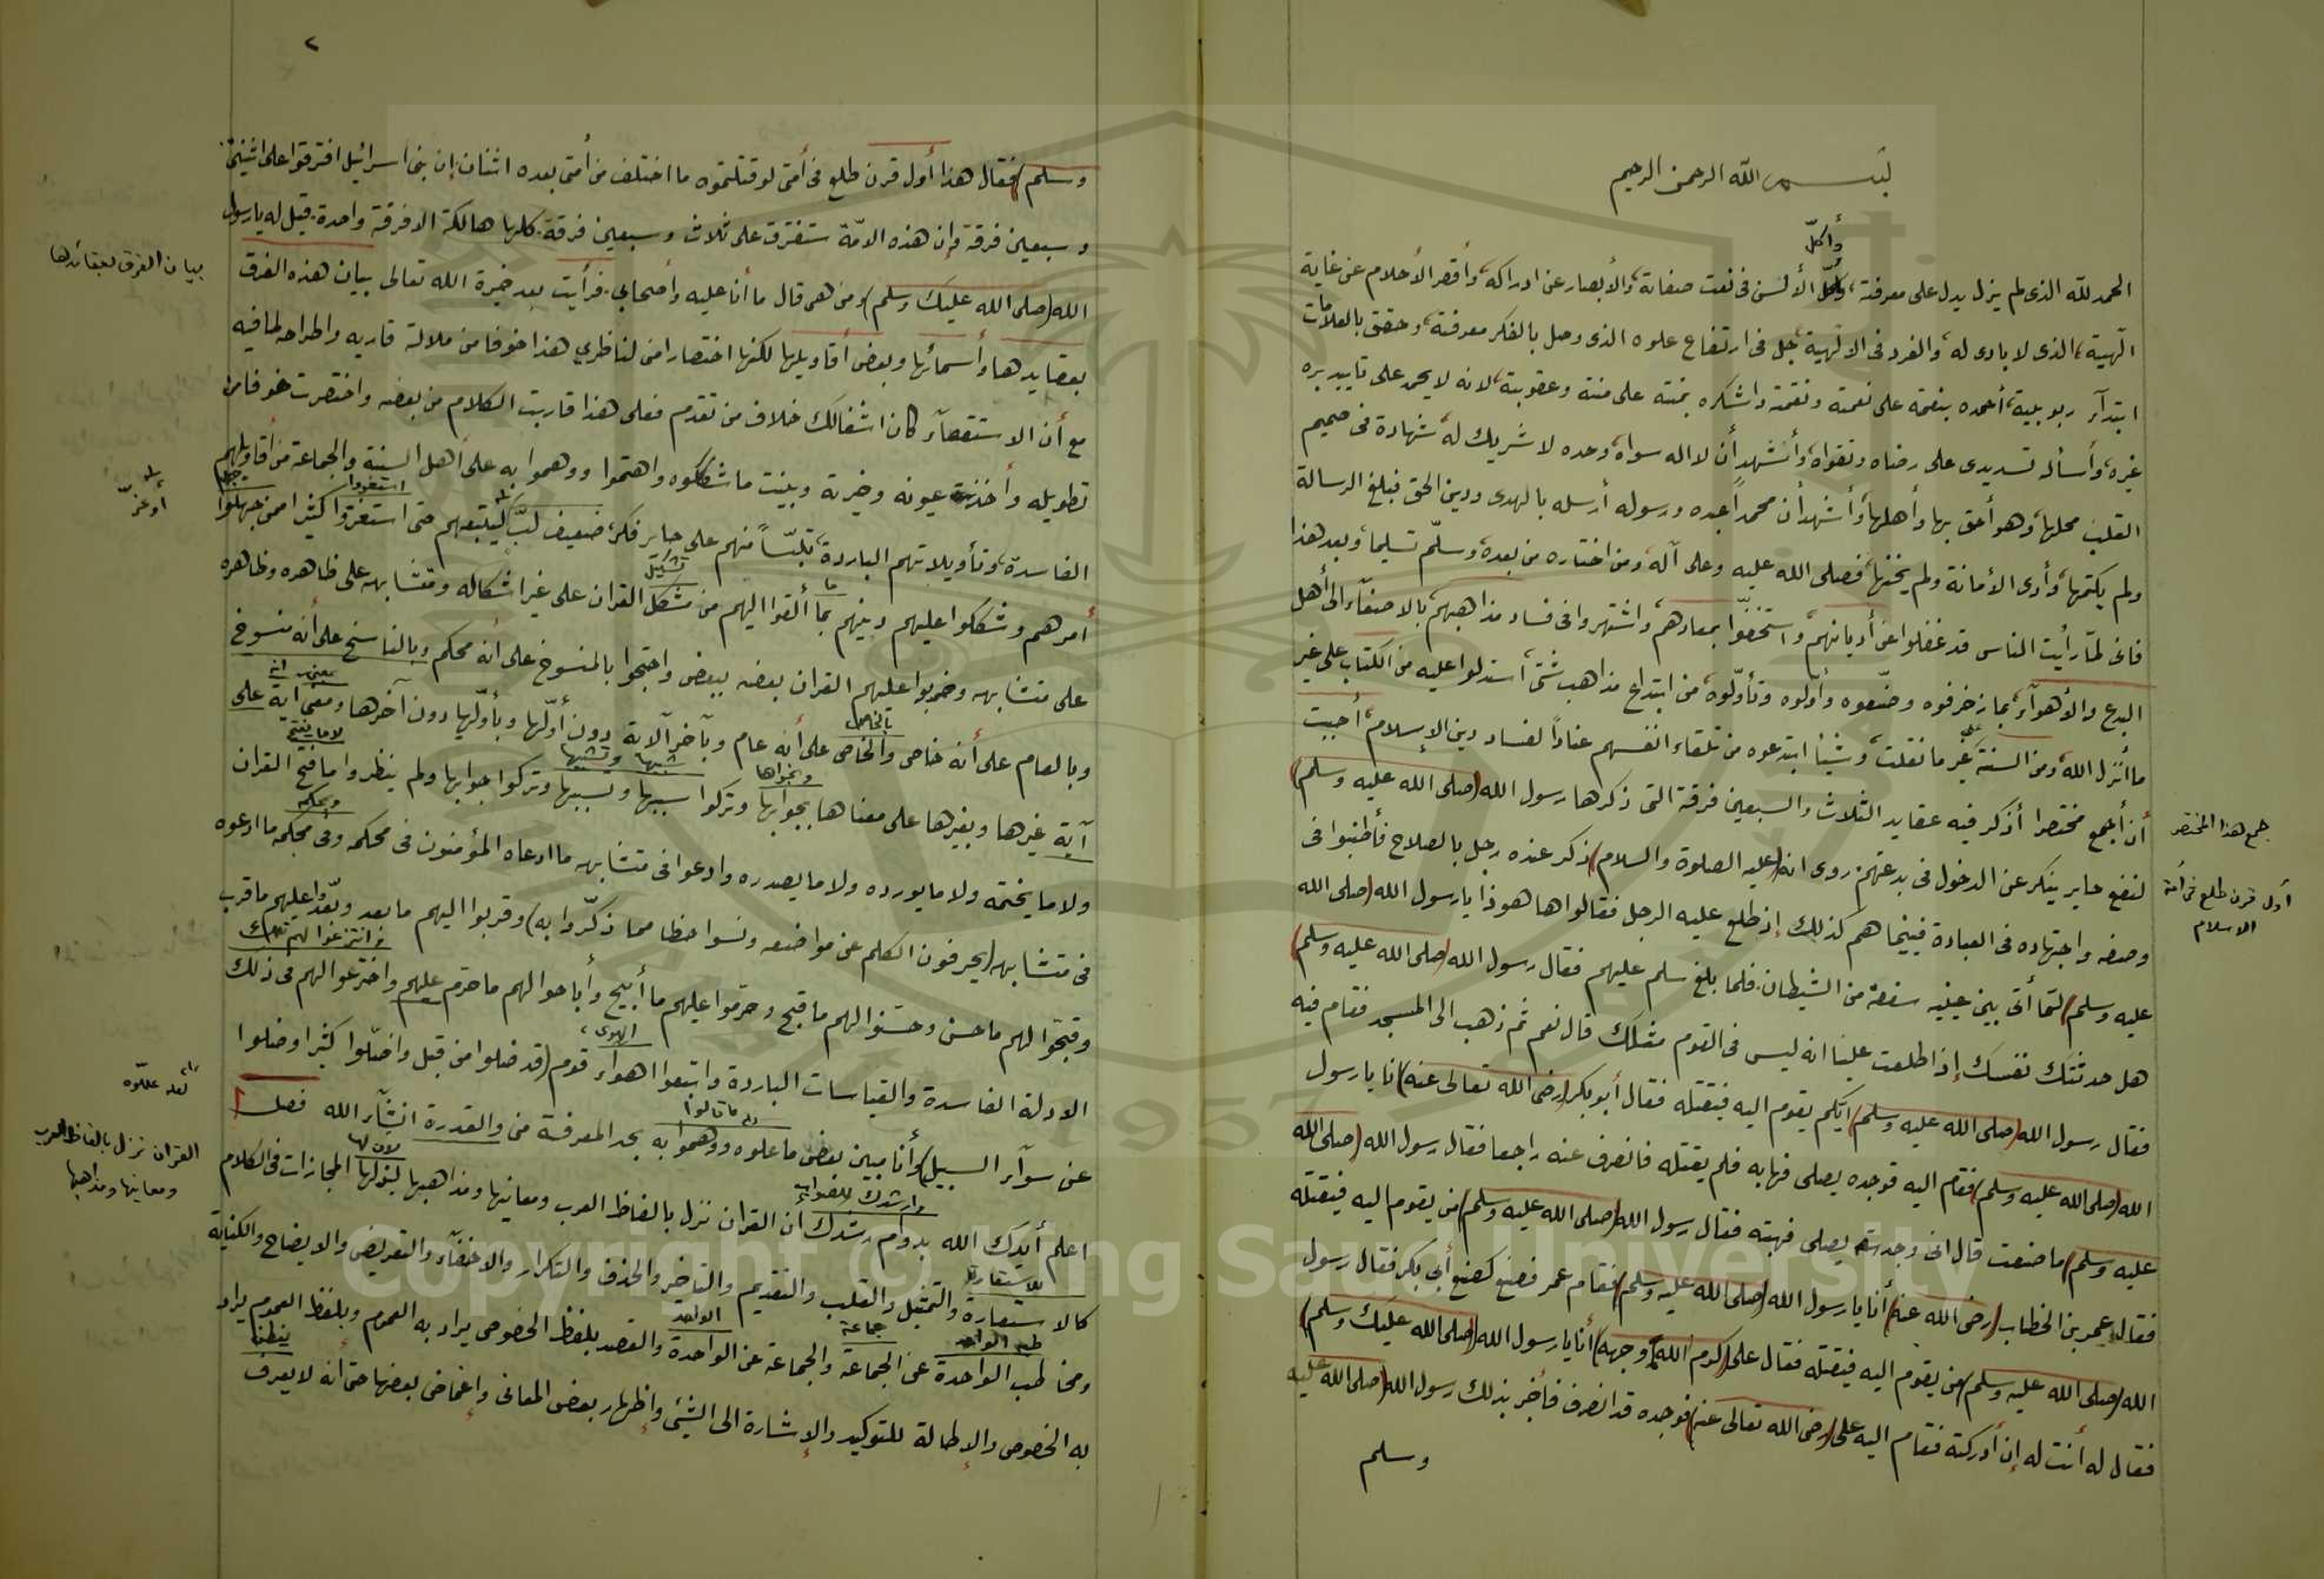 بسم الله الرحمن الرحيم
وأكلّ
الحمد لله الذى لم يزل يدل على معرفته، وكلّ الألسن فى نعت صفاته، والأبصار عن ادراكه، وأقصر الأحلام عن غاية
الٓهيته، الذى لا بادى له، والفرد فى الالٓهية، جل فى ارتفاع علوه الذى وصل بالفكر معرفته، وحقق بالعلامات
ابتدآء ربوبيته، أحمده بنعمه على نعمته ونقمته واشكره بمنته على منته وعقوبته، لانه لا يحمد على تاييد بره
غيره، وأسأله تسديدى على رضاه وتقواه، وأشهد أن لا اله سواه، وحده لا شريك له، شهادة فى صميم
القلب محلها، وهو أحق بها وأهلها، وأشهد أن محمداً عبده ورسوله أرسله بالهدى ودين الحق فبلغ الرسالة
ولم يكتمها، وأدى الأمانة ولم يخنها، فصلى الله عليه وعلى آله، ومن اختاره من بعده، وسلّم تسليما، وبعد هذا
فانى لمّا رأيت الناس قد غفلوا عن أديانهم، واستخفوا بمعادهم، واشتهروا فى فساد مذاهبهم، بالاصغآء الى أهل
البدع والأهوآء، بما زخرفوه وضيّعوه وأوّلوه وتأوّلوه، من ابتداع مذاهب شتى، استدلوا عليه من الكتاب على غير
ما أنزل الله، ومن السنة على غير ما نقلت، وشيئا ابتدعوه من تلقاء انفسهم عناداً لفساد دين الإسلام، أحببت
أن أجمع مختصرا أذكر فيه عقايد الثلاث والسبعين فرقة التى ذكرها رسول الله (صلى الله عليه وسلم)
جمع هذا المختصر
لنفع حاير ينكر عن الدخول فى بدعتهم، روى انه (عليه الصلوة والسلام) ذكر عنده رجل بالصلاح فأطنبوا فى
أول قرن طلع فى أمة
الاسلام
وصفه واجتهاده فى العبادة فبينما هم كذلك إذ طلع عليه الرجل فقالوا ها هو ذا يا رسول الله (صلى الله
عليه وسلم) لتما أتى بين عينيه سفعة من الشيطان. فلما بلغ سلم عليهم فقال رسول الله (صلى الله عليه وسلم)
هل حدثتك نفسك إذ اطلعت علينا انه ليس فى القوم مثلك قال نعم ثم ذهب الى المسجد فقام فيه
فقال رسول الله (صلى الله عليه وسلم) ايّكم يقوم اليه فيقتله فقال أبو بكر (رضى الله تعالى عنه) انا يا رسول
الله (صلى الله عليه وسلم) فقام اليه فوجده يصلى فهابه فلم يقتله فانصرف عنه راجعا فقال رسول الله (صلى الله
عليه وسلم) ما صنعت قال انى وجدته يصلى فهبته فقال رسول الله (صلى الله عليه وسلم) من يقوم اليه فيقتله
فقال عمر بن الخطاب (رضى الله عنه) أنا يا رسول الله (صلى الله عليه وسلم) فقام عمر فصنع كصنع أبى بكر فقال رسول
الله (صلى الله عليه وسلم) من يقوم اليه فيقتله فقال على (كرم الله وجهه) أنا يا رسول الله (صلى الله عليك وسلم)
فقال له أنت له إن أدركته فقام اليه على (رضى الله تعالى عنه) فوجده قد انصرف فأخبر بذلك رسول الله (صلى الله عليه
وسلم
٢
وسلم) فقال هذا أول قرن طلع فى أمتى لو قتلتموه ما اختلف من أمتى بعده اثنان إن بنى اسرائيل افترقوا على اثنين
وسبعين فرقة وإن هذه الامّة ستفترق على ثلاث وسبعين فرقة. كلها هالكة الا فرقة واحدة. قيل له يا رسول
الله (صلى الله عليك وسلم) ومن هم قال ما أنا عليه وأصحابى. فرأيت بعد خيرة الله تعالى بيان هذه الفرق
بيان الفرق بعقائدها
بعقايدها وأسمائها وبعض أقاويلها لكنها اختصارا منى لناظرى هذا خوفا من ملالة قاريه واطراحه لما فيه
مع أن الاستقصآء كان اشغالك خلاف من تقدم فعلى هذا قاربت الكلام من بعضه واختصرت خوفا من
تطويله وأخذت عيونه وخيرته وبينت ما شككوه واهتموا ووهموا به على أهل السنة والجماعة من أقاويلهم
الفاسدة، وتأويلاتهم الباردة، تلبّسا منهم على حاير فكر، ضعيف لبّ ليتبعهم حتى استغزوا كثيرا ممن جهلوا
استغووا
جهل
أو غرّ
أمرهم وشككوا عليهم دينهم بما ألقوا اليهم من مشكل القران على غير اشكاله ومتشابهه على ظاهره وظاهره
ما
تشكيل
على متشابهه وضربوا عليهم القران بعضه ببعض واحتجوا بالمنسوخ على أنه محكم وبالناسخ على أنه منسوخ
وبالعام على أنه خاص والخاص على أنه عام وبآخر الآية دون أوّلها وبأوّلها دون آخرها ومعنى اية على
بالخاص
آية غيرها وبغيرها على معناها بجوابها وتركوا سببها وتسببها وتركوا جوابها ولم ينظروا ما فتح القران
ونحواها
شبهها وتشبيها
لا ما يفتح
ولا ما يختمه ولا ما يورده ولا ما يصدره وادعوا فى متشابهه ما ادعاه المؤمنون فى محكمه وفى محكمه ما ادعوه
وبحكم
فى متشابهه (يحرفون الكلم عن مواضعه ونسوا حظا مما ذكّروا به) وقربوا اليهم ما بعد وبعّدوا عليهم ما قرب
وقبحّوا لهم ما حسن وحسّنوا لهم ما قبح وحرّموا عليهم ما أبيح وأباحوا لهم ما حرّم عليهم واخترعوا لهم فى ذلك
الادلة الفاسدة والقياسات الباردة واتبعوا اهواء قوم (قد ضلوا من قبل واضلّوا كثيرا وضلوا
الهوى،
عن سوآء السبيل) وأنا مبين بعض ما علوه ووهموا به بحد المعرفة منى والقدرة انشآء الله فصل
ما قالوا
لعله عللّوه
اعلم أيدك الله بدوام رشدك أن القران نزل بالفاظ العرب ومعانيها ومذاهبها لنزلها المجازات فى الكلام
وأرشدك للصواب
لأن لها
القران نزل بالفاظ العرب
ومعانيها ومذاهبها
كالاستعارة والتمثيل والقلب والتقديم والتاخير والحذف والتكرار والاخفآء والتعريض والايضاح والكناية
للاستعارة
ومخاطب الواحدة عن الجماعة والجماعة عن الواحدة والقصد بلفظ الخصوص يراد به العموم وبلفظ العموم يراد
طبه الواحد
جماعة
الواحد
به الخصوص والإطالة للتوكيد والإشارة الى الشئ وإظهار بعض المعانى وإغماض بعضها حتى أنه لا يعرف
1957
Copyright © King Saud University